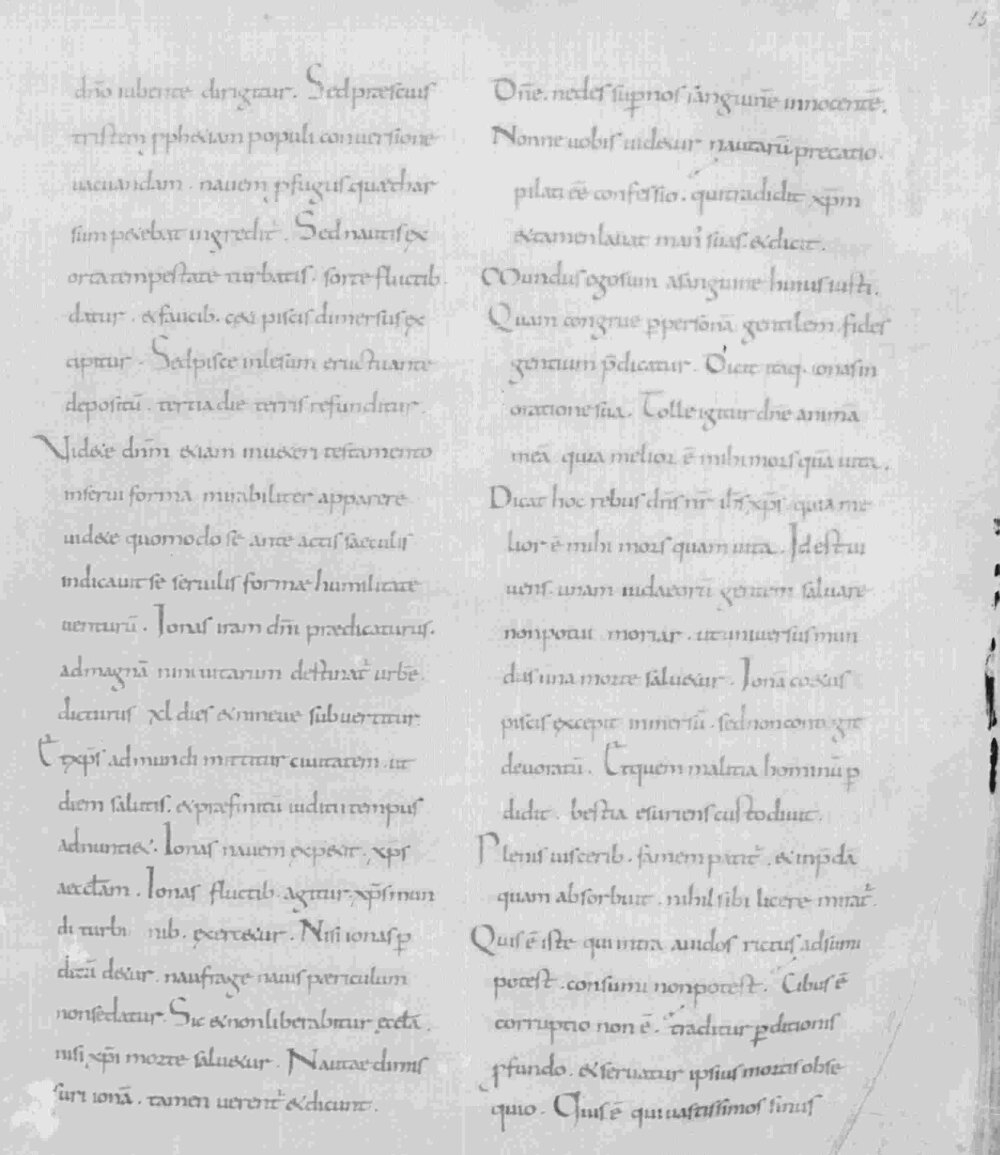 15
dn̄o iubente dirigitur. Sed præscius
tristem ꝓphetiam populi conuersione
uacuandam. nauem ꝓfugus quæ thar
sum petebat ingredit᷑. Sed nautis ex
orta tempestate turbatis. sorte fluctib.
datur. & faucib. ceti piscis dimersus ex
cipitur. Sed pisce inlesum eructuante
depositū. tertia die terris refunditur.
Videte dn̄m etiam in ueteri testamento
inserui formā mirabiliter apparere
uidete quomodo se ante actis sæculis
indicauit se seruilis formæ humilitate
uenturū. Ionas iram dn̄i prædicaturus.
ad magnā niniuitarum destinat᷑ urbē.
dicturus xl dies & nineue subuertitur
Et xp̄s ad mundi mittitur ciuitatem. ut
diem salutis. & præfinitū iudicii tempus
adnuntiet. Ionas nauem expetit. xp̄s
aecclam̄. Ionas fluctib. agitur. xp̄s mun
di turbi nib. exercetur. Nisi ionas ꝑ
ditū detur. naufragæ nauis periculum
non sedatur. Sic & non liberabitur ęccl̄a.
nisi xp̄i morte saluetur. Nautae dimis
suri ionā. tamen uerent᷑ & dicunt.
Dn̄e. ne des suꝑ nos sanguinē innocentē.
Nonne uobis uidetur nautarū precatio.
pilati eē confessio. qui tradidit xp̄m
& tamen lauat man᷒ suas. & dicit.
Mundus ego sum a sanguine huius iusti.
Quam congrue ꝑ personā gentilem fides
gentium p̄dicatur. Dicit itaq. ionas in
oratione sua. Tolle igitur dn̄e animā
meā quia melior ē mihi mors quā uita.
Dicat hoc rebus dn̄s nr̄ ih̄s xp̄s quia me
lior ē mihi mors quam uita. Id est ui
uens. unam iudaeorū gentem saluare
non potui moriar. ut uniuersus mun
dus una morte saluetur. Ionā coetus
piscis excepit inmersū. sed non contigit
deuoratū. Et quem malitia hominū ꝑ
didit. bestia esuriens custodiuit.
Plenis uiscerib. famem patit᷑. & in p̄dā
quam absorbuit. nihil sibi licere mirat᷑.
Quis ē iste qui intra auidos rictus adsumi
potest. consumi non potest. Cibus ē
corruptio non ē. traditur ꝑditionis
ꝓfundo. & seruatur ipsius mortis obse
quio. Quis ē qui uastissimos sinus